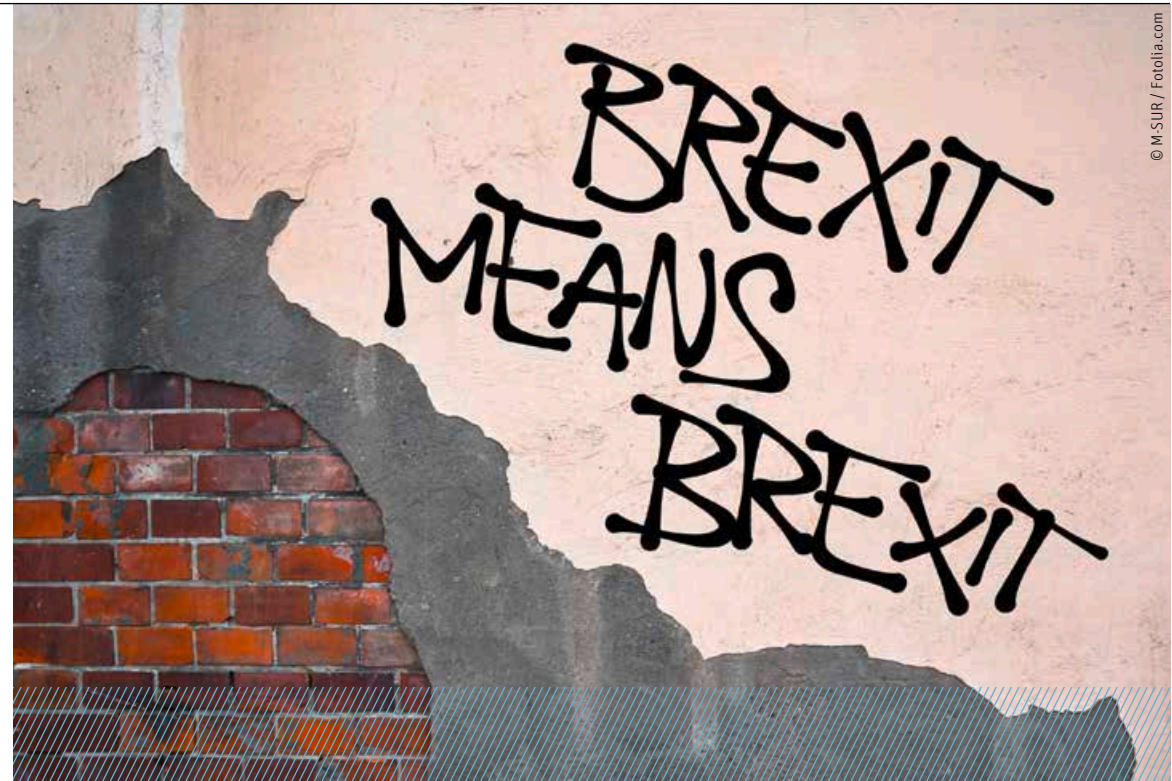 BREXIT
MEANS
BREXIT
© M-SUR / Fotolia.com